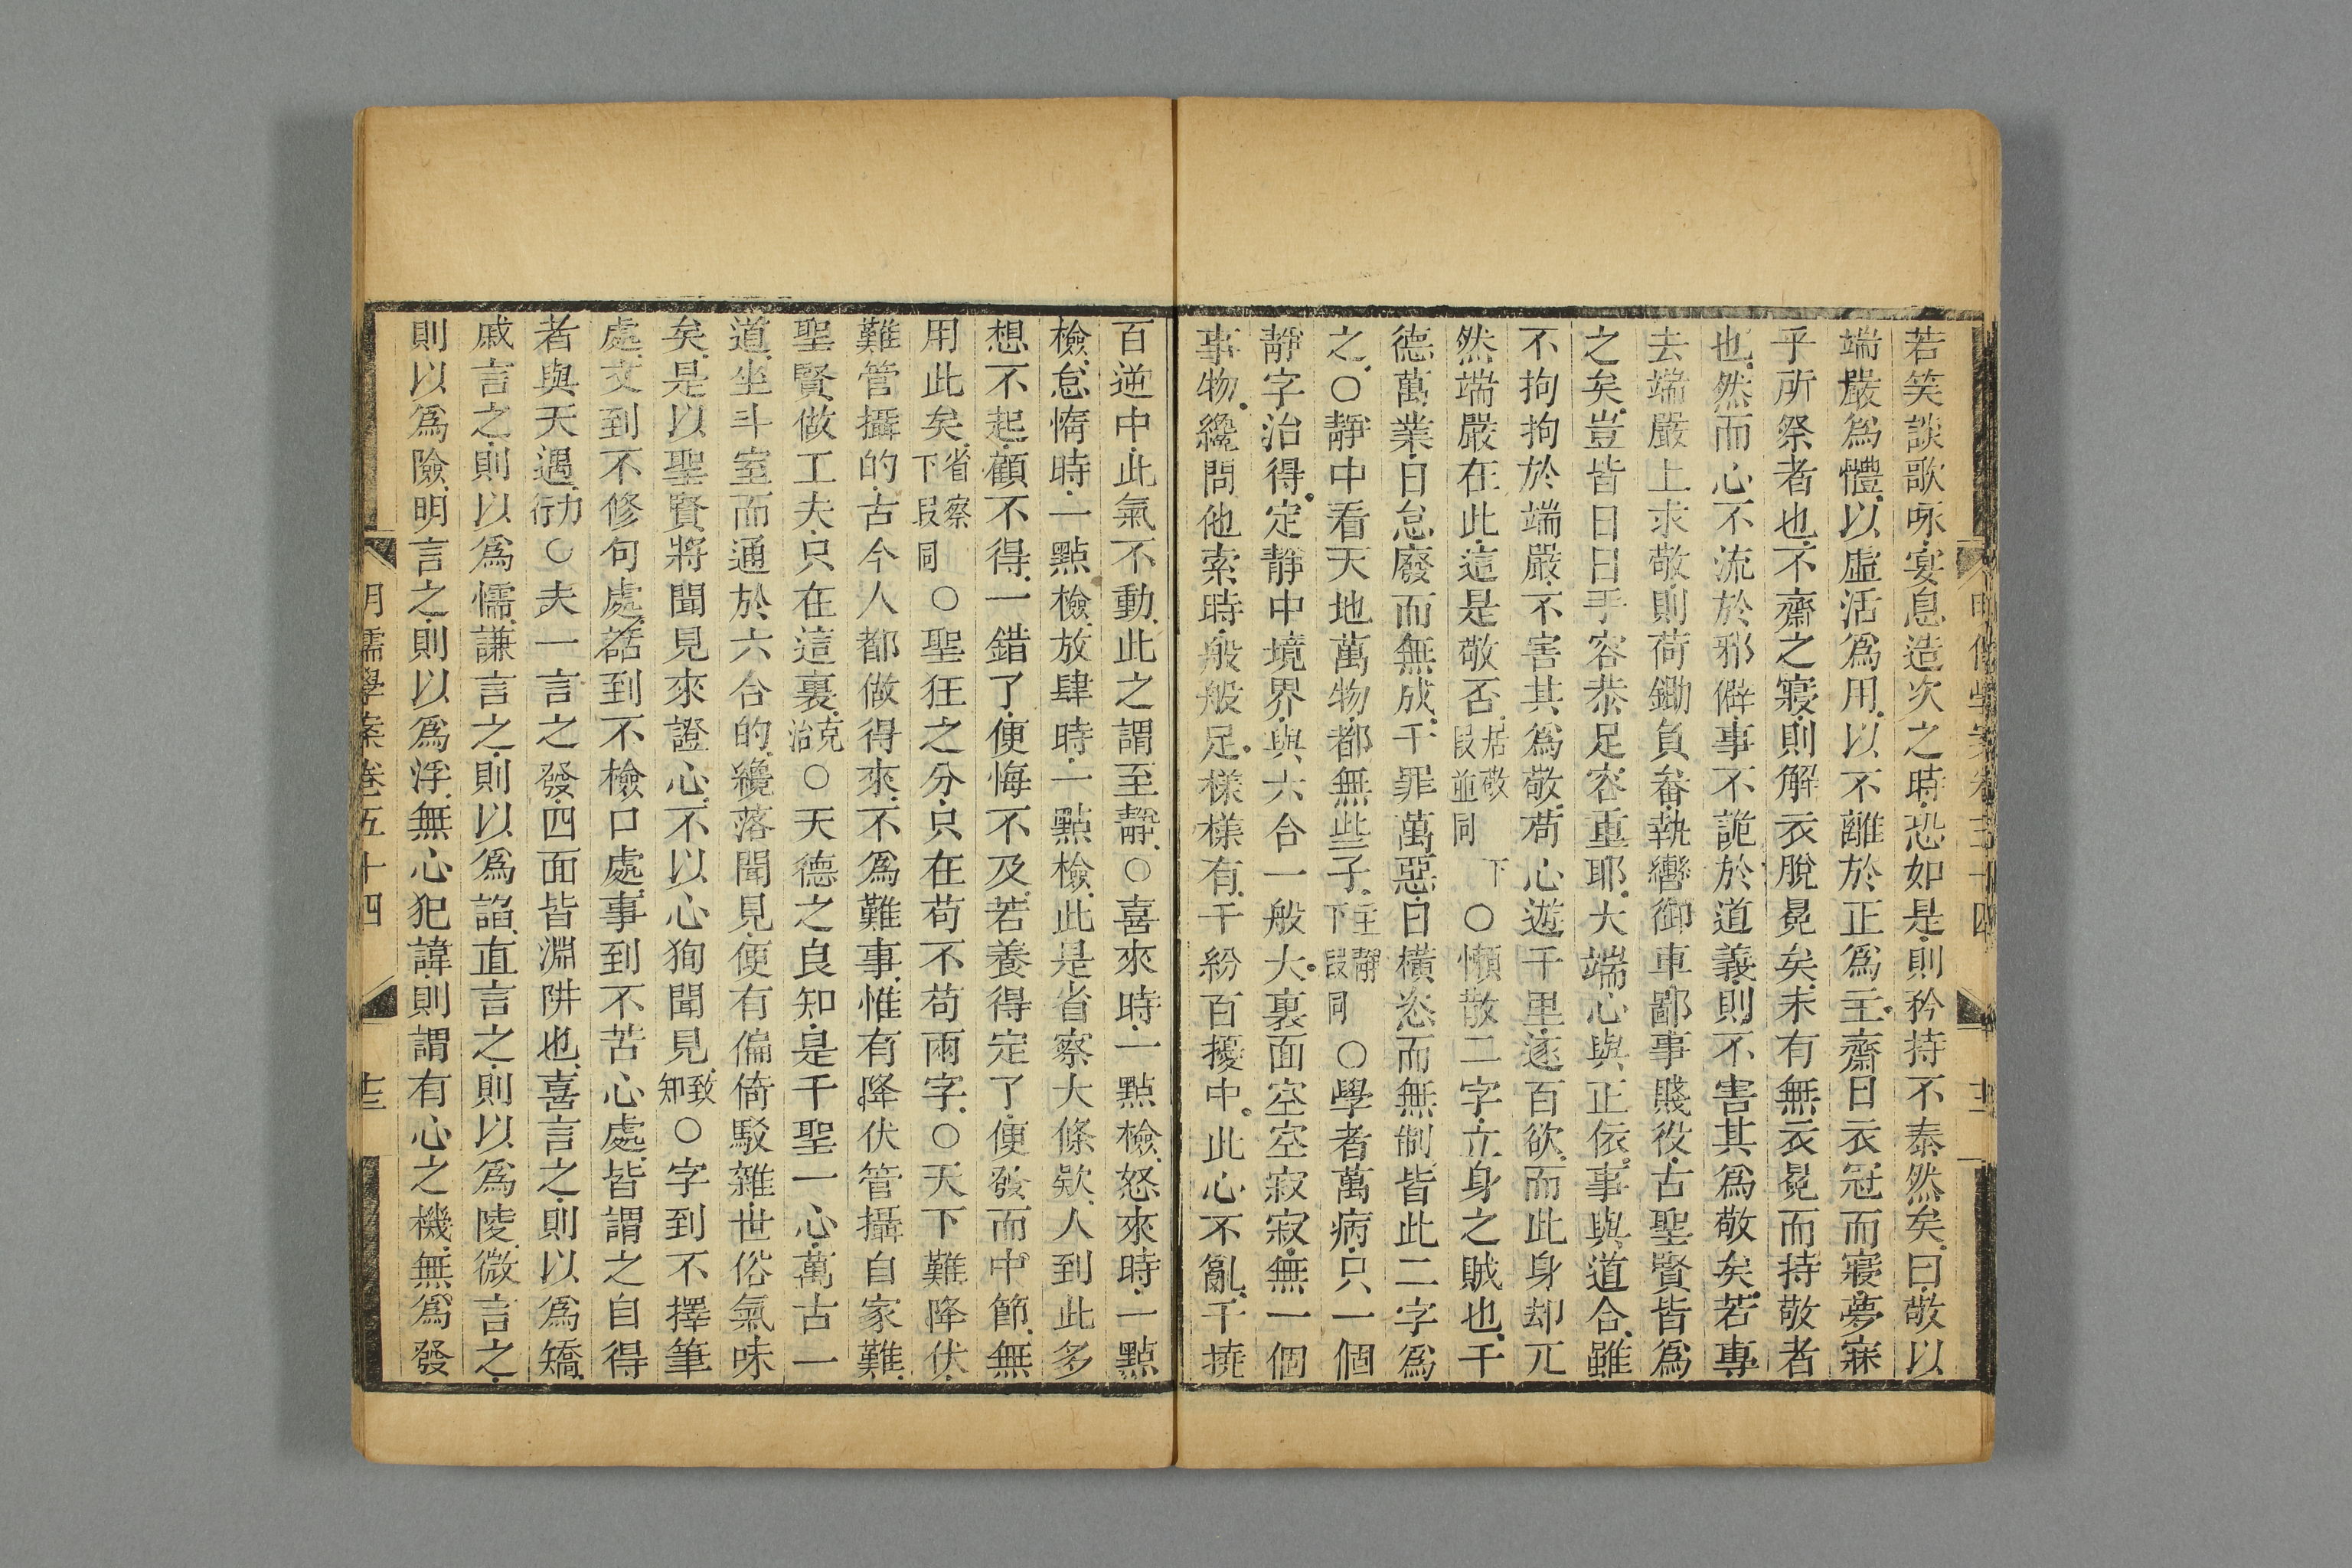 若笑談歌咏宴息造次之時恐如是則矜持不泰然矣曰敬以
端嚴爲體以虛活爲用以不離於正爲主齋日衣冠而寢夢寐
乎所祭者也不齋之寢則解衣脫冕矣未有無衣冕而持敬者
也然而心不流於邪僻事不詭於道義則不害其爲敬矣若專
去端嚴上求敬則荷鋤負畚執轡御車鄙事賤役古聖賢皆爲
之矣豈皆日日手容恭足容重耶大端心與正依事與道合雖
不拘拘於端嚴不害其爲敬苟心遊千里逐百欲而此身却兀
然端嚴在此這是敬否居敬下段並同○懶散二字立身之賊也千
德萬業日怠廢而無成千罪萬惡日橫恣而無制皆此二字爲
之○靜中看天地萬物都無些子主靜下段同○學者萬病只一個
靜字治得定靜中境界與六合一般大裏面空空寂寂無一個
事物纔問他索時般般足樣樣有千紛百擾中此心不亂千撓
百逆中此氣不動此之謂至靜○喜來時一點檢怒來時一點
檢怠惰時一點檢放肆時一點檢此是省察大條欵人到此多
想不起顧不得一錯了便悔不及若養得定了便發而中節無
用此矣省察下段同○聖狂之分只在苟不苟兩字○天下難降伏
難管攝的古今人都做得來不爲難事惟有降伏管攝自家難
聖賢做工夫只在這裏克治○天德之良知是千聖一心萬古一
道坐斗室而通於六合的纔落聞見便有偏倚駁雜世俗氣味
矣是以聖賢將聞見來證心不以心狥聞見致知○字到不擇筆
處文到不修句處話到不檢口處事到不苦心處皆謂之自得
者與天遇力行○夫一言之發四面皆淵阱也喜言之則以爲矯
戚言之則以爲懦謙言之則以爲諂直言之則以爲陵微言之
則以爲險明言之則以爲浮無心犯諱則謂有心之機無爲發
明儒學案卷五十四 十三